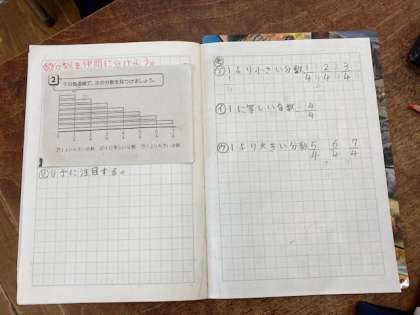 分数を仲間に分けよう。
2
下の数直線で、次の分数を見つけましょう。
㋐1より小さい分数 ㋑1に等しい分数 ㋒1より大きい分数
分子に注目する。
㋐1より小さい分数 1/4 2/4 3/4
㋑1に等しい分数 4/4
㋒1より大きい分数 5/4 6/4 7/4